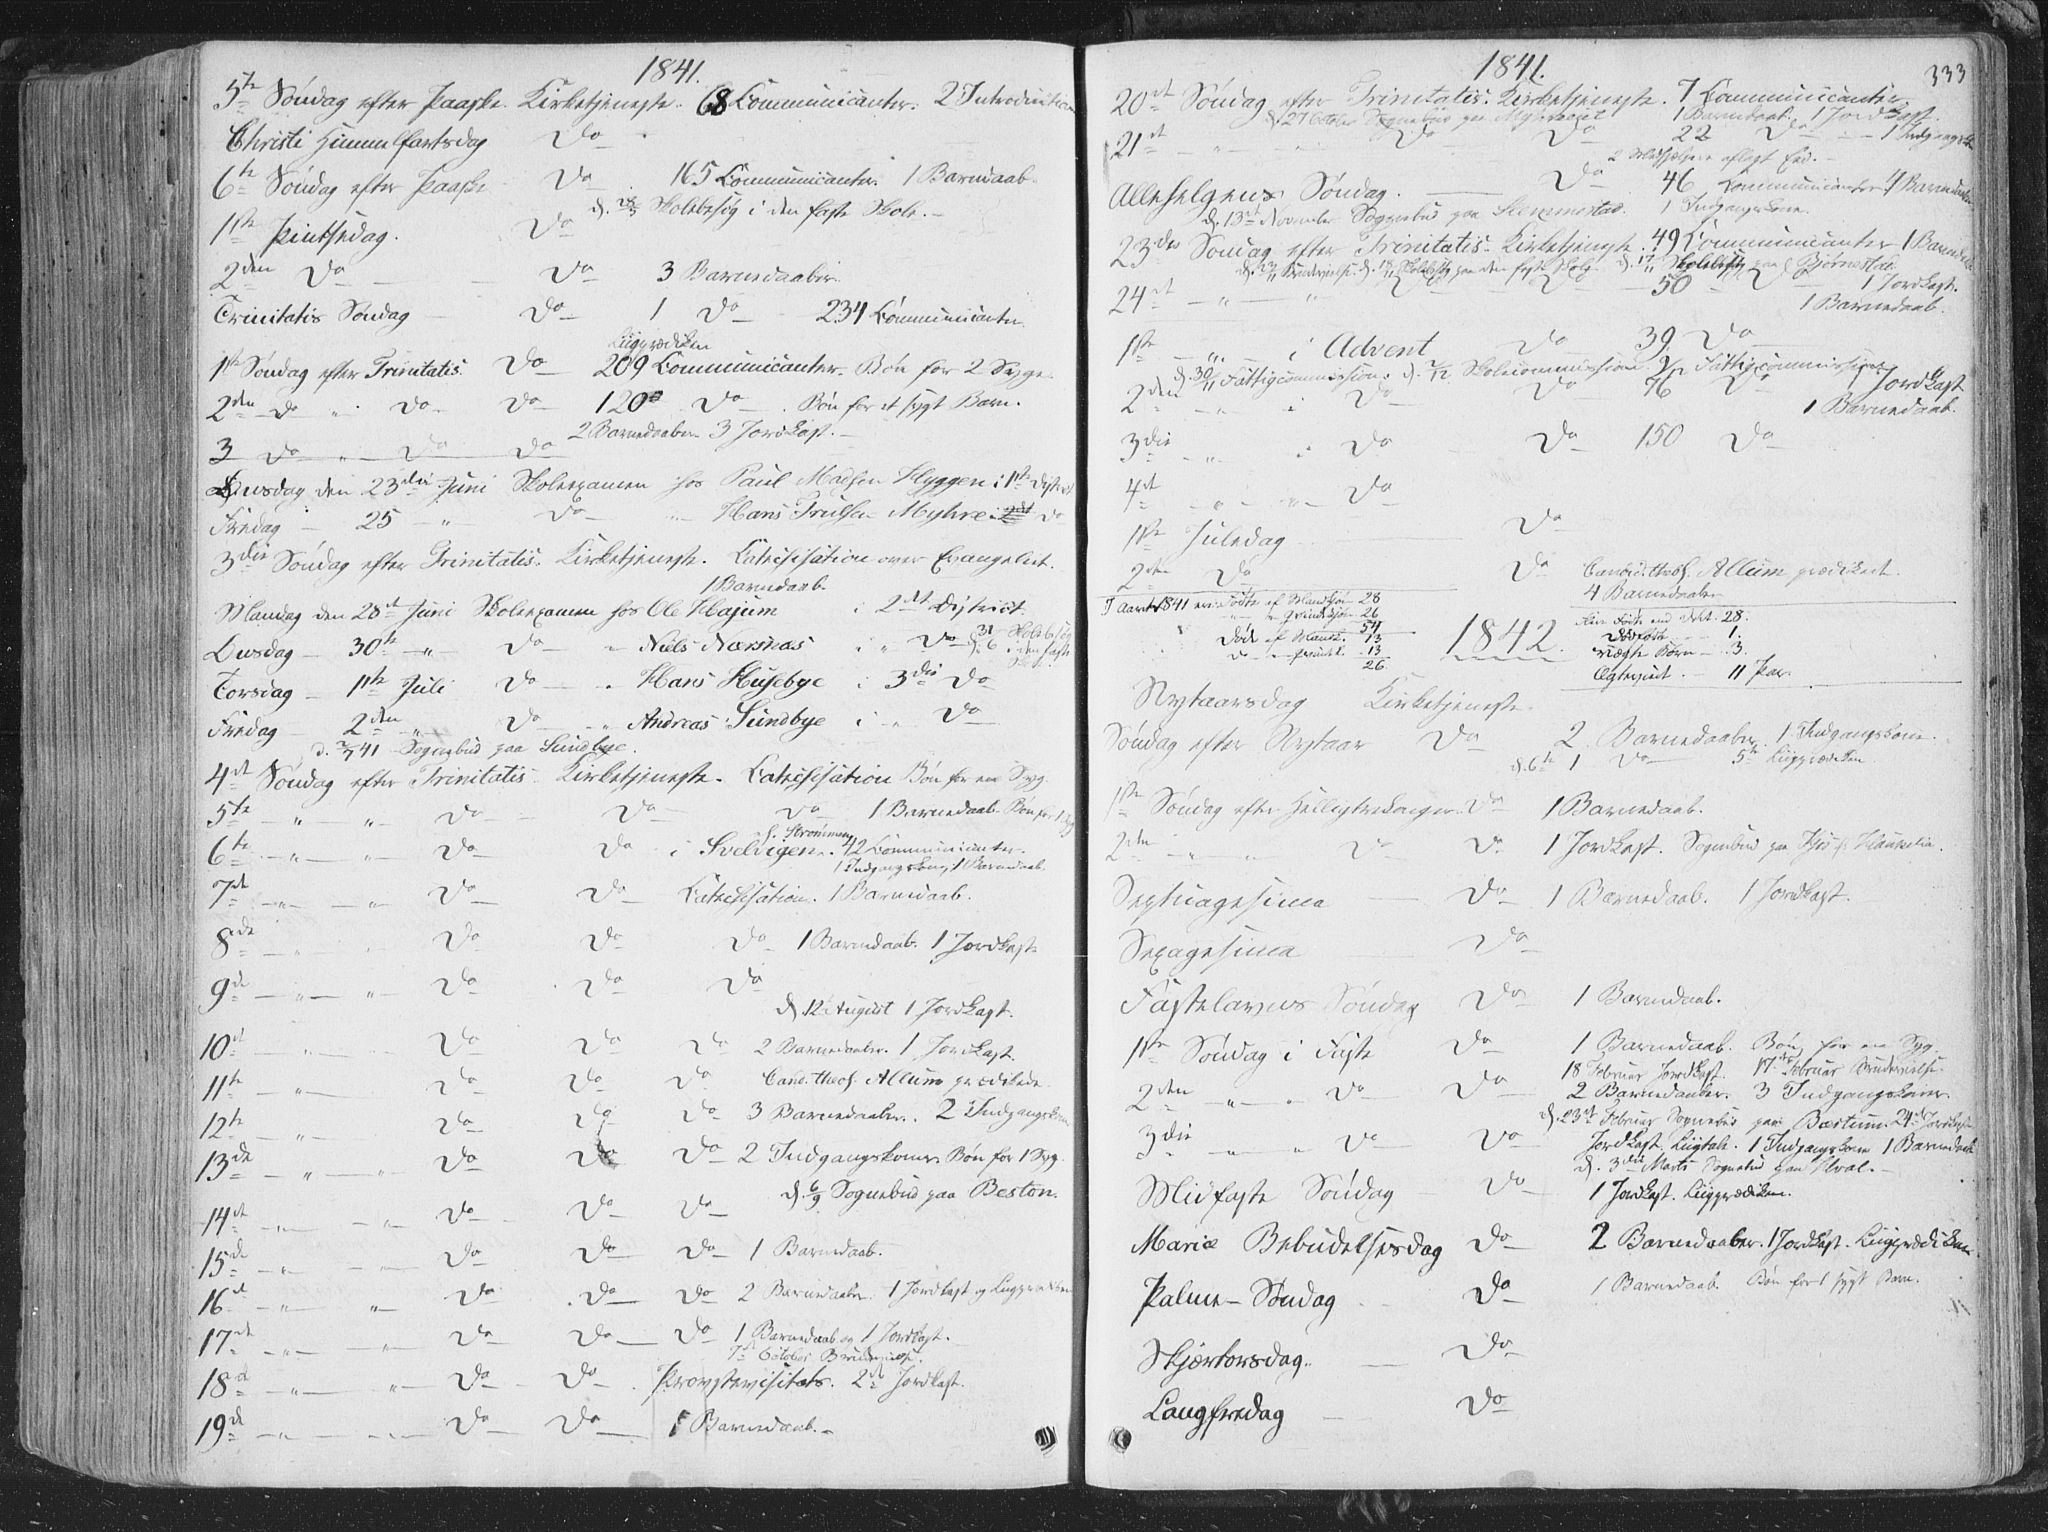 1841.
5te Søndag efter Paaske. Kirketjeneste. 68 Communicanter. 2 Introduction
Christi Himmelfartsdag Do
6te Søndag efter Paaske Do 165 Communicanter. 1 Barnedaab.
Skolebesøg i den faste Skole.
1ste Pintsedag. Do
2den Do Do 3 Barnedaaber.
Trinitatis Søndag Do 1 Do 234 Communicanter
Liigprædiken
1ste Søndag efter Trinitatis. Do 209 Communicanter. Bøn for 2 Syge
2den Do " Do Do 120 Do Bøn for et sygt Barn.
2 Barnedaaber 3 Jordkast.
3 Do " Do Do
Onsdag den 23die Juni Skoleexamen hos Paul Madsen Hyggen i 1ste District
Fredag 25 " Do " Hans Trulsen Myhre i Do
3die Søndag efter Trinitatis. Kirketjeneste. Catechisation over Evangeliet.
1 Barnedaab.
Mandag den 28de Juni Skoleexamen hos Ole Hajum i 2det District
Onsdag 30te " Do " Niels Nærsnæs i " Do
Torsdag 1ste Juli Do " Hans Husebye i 3die Do
Fredag 2den " Do " Andreas Sundbye i " Do
Sognebud paa Sundbye.
4de Søndag efter Trinitatis. Kirketjeneste. Catechisation Bøn for en Syg.
5te " " Do Do Do 1 Barnedaab. Bøn for 1 Syg
6te " " Do Do i Svelvigen. 42 Communicanter.
1 Indgangskone, 1 Barnedaab.
7de " " Do Do Catechisation. 1 Barnedaab.
8de " " Do Do Do 1 Barnedaab. 1 Jordkast.
9de " " Do Do Do
d. 12 August 1 Jordkast.
10de " Do Do Do 2 Barnedaaber. 1 Jordkast.
11te " Do Do Do Cand. theol. Allum prædikede.
12te " Do Do Do 3 Barnedaaber. 2 Indgangskoner
13de " " Do Do Do 2 Indgangskoner. Bøn for 1 Syg.
d. 6/9 Sognebud paa Beston.
14de " " Do Do Do
15de " " Do Do Do 1 Barnedaab.
16de " " Do Do Do 2 Barnedaaber. 1 Jordkast og Liigprædiken
17de " " Do Do Do 1 Barnedaab og 1 Jordkast.
7de October Brudevielse.
18de " " Do Do Provstevisitats. 2 Jordkast.
19de " " Do Do 1 Barnedaab.
1841.
333
20de Søndag efter Trinitatis. Kirketjeneste. 7 Communicanter
1 Barnedaab. 1 Jordkast.
21de " " Do Do 22 Do 1 Indgangsk
Allehelgens Søndag. Do 46 Communicanter 4 Barnedaaber
d. 13de November Sognebud paa Slemmestad. 1 Indgangskone.
23de Søndag efter Trinitatis. Kirketjeneste. 49 Communicanter 1 Barnedaab
Brudevielse. Skolebesøg paa den faste Skole. Skolebesøg paa Bjørnestad
24de " " Do Do 50 Do 1 Jordkast.
1 Barnedaab.
1ste " i Advent Do 39. Do
d. 30/11 Fattigcommission. Skolecommission. Fattigcommission
2den " i Do Do 76 Do 1 Jordkast
1 Barnedaab.
3die " i Do Do 150 Do
4de " " Do
1ste Juledag Do
2den Do Do Cand. theol. Allum prædikede.
4 Barnedaaber
I Aaret 1841 ere: Fødte af Mandkjøn 28
" " Qvindekjøn 26
54
Døde af Mandk. 13
Do " Qvindek. 13
26.
28.
Dødfødte 1.
uægte Børn 3.
Ægteviet. 11 Par.
1842.
Nytaarsdag Kirketjeneste.
Søndag efter Nytaar Do 2 Barnedaaber. 1 Indgangskone.
d. 6te 1 Do 5te Liigprædiken
1ste Søndag efter Helligtrekonger. Do 1 Barnedaab.
2den " " Do Do 1 Jordkast. Sognebud paa
Septuagesima Do 1 Barnedaab. 1 Jordkast.
Sexagesima Do
Fastelavns Søndag Do 1 Barnedaab.
1ste Søndag i Faste Do 1 Barnedaab. Bøn for en Syg.
18 Februar Jordkast. 17de Februar Brudevielse.
2den " " Do Do 2 Barnedaaber. 3 Indgangskoner.
d. 23de Februar Sognebud paa Bærtum. 24de Jordkast
3die " " Do Do Jordkast, Liigtale. 1 Indgangskone 1 Barnedaab
d. 3die Marts Sognebud paa
Midfaste Søndag Do 1 Jordkast. Liigprædiken.
Mariæ Bebudelsesdag Do 2 Barnedaaber. 1 Jordkast. Liigprædiken
Palme-Søndag Do 1 Barnedaab. Bøn for 1 sygt Barn.
Skjærtorsdag. Do
Langfredag Do